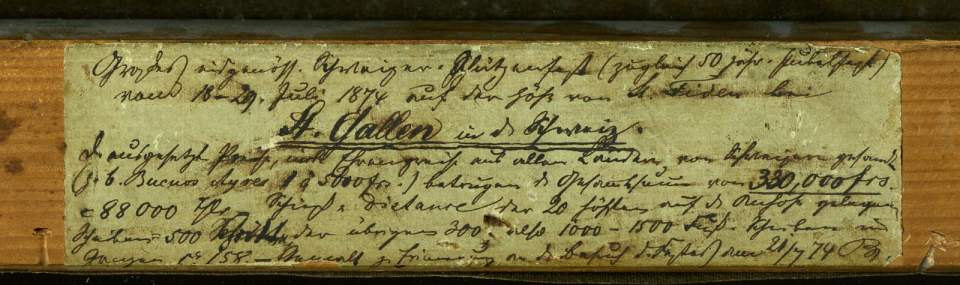 Großes eidgenöss. Schweizer-Schützenfest (zugleich 50 jähr. Jubelfest)
vom 18-29. Juli 1874 auf der Höhe von St. Fiden bei
St. Gallen in d. Schweiz.
D. ausgesetzt. Preise, incl. Ehrenpreise aus allen Ländern von Schweizern gesandt
(z. b. Buenos Ayres 1 à 5000 frs.) betrugen d. Gesamtsumm von 330,000 frs
= 88000 Thlr. Schieß-Distance der 20 höchsten auf d. Anhöhe gelegenen
Scheiben 500 Schritt, der übrigen 300, also 1000-1500 Fuß. Scheiben im
Ganzen 158. - Gemalt z. Erinnerung an d. Besuch d. Festes am 21/7 74